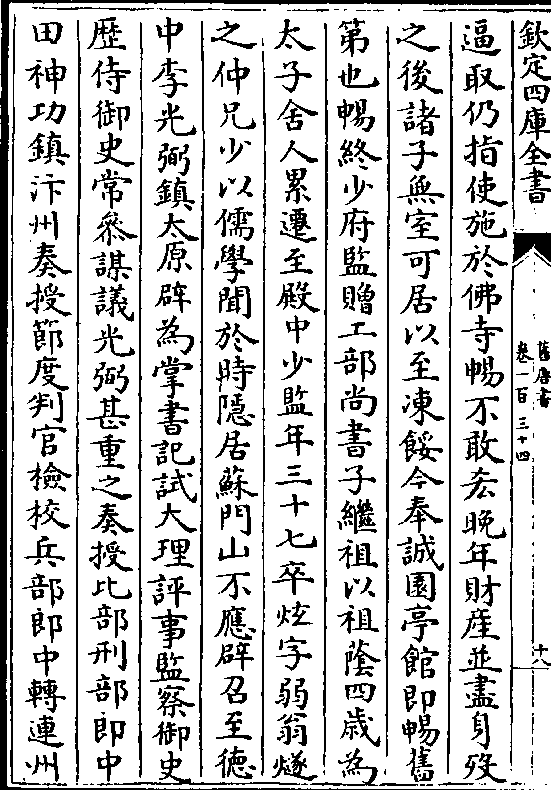 欽定四庫全書
舊唐書
卷一百三十四
十八
逼取仍指使施於佛寺暢不敢吝晚年財産並盡身殁
之後諸子無室可居以至凍餒今奉誠園亭館即暢舊
第也暢終少府監贈工部尚書子繼祖以祖蔭四歳為
太子舍人累遷至殿中少監年三十七卒炫字弱翁燧
之仲兄少以儒學聞於時隱居蘇門山不應辟召至德
中李光弼鎮太原辟為掌書記試大理評事監察御史
歴侍御史常叅謀議光弼甚重之奏授比部刑部郎中
田神功鎮汴州奏授節度判官檢校兵部郎中轉連州